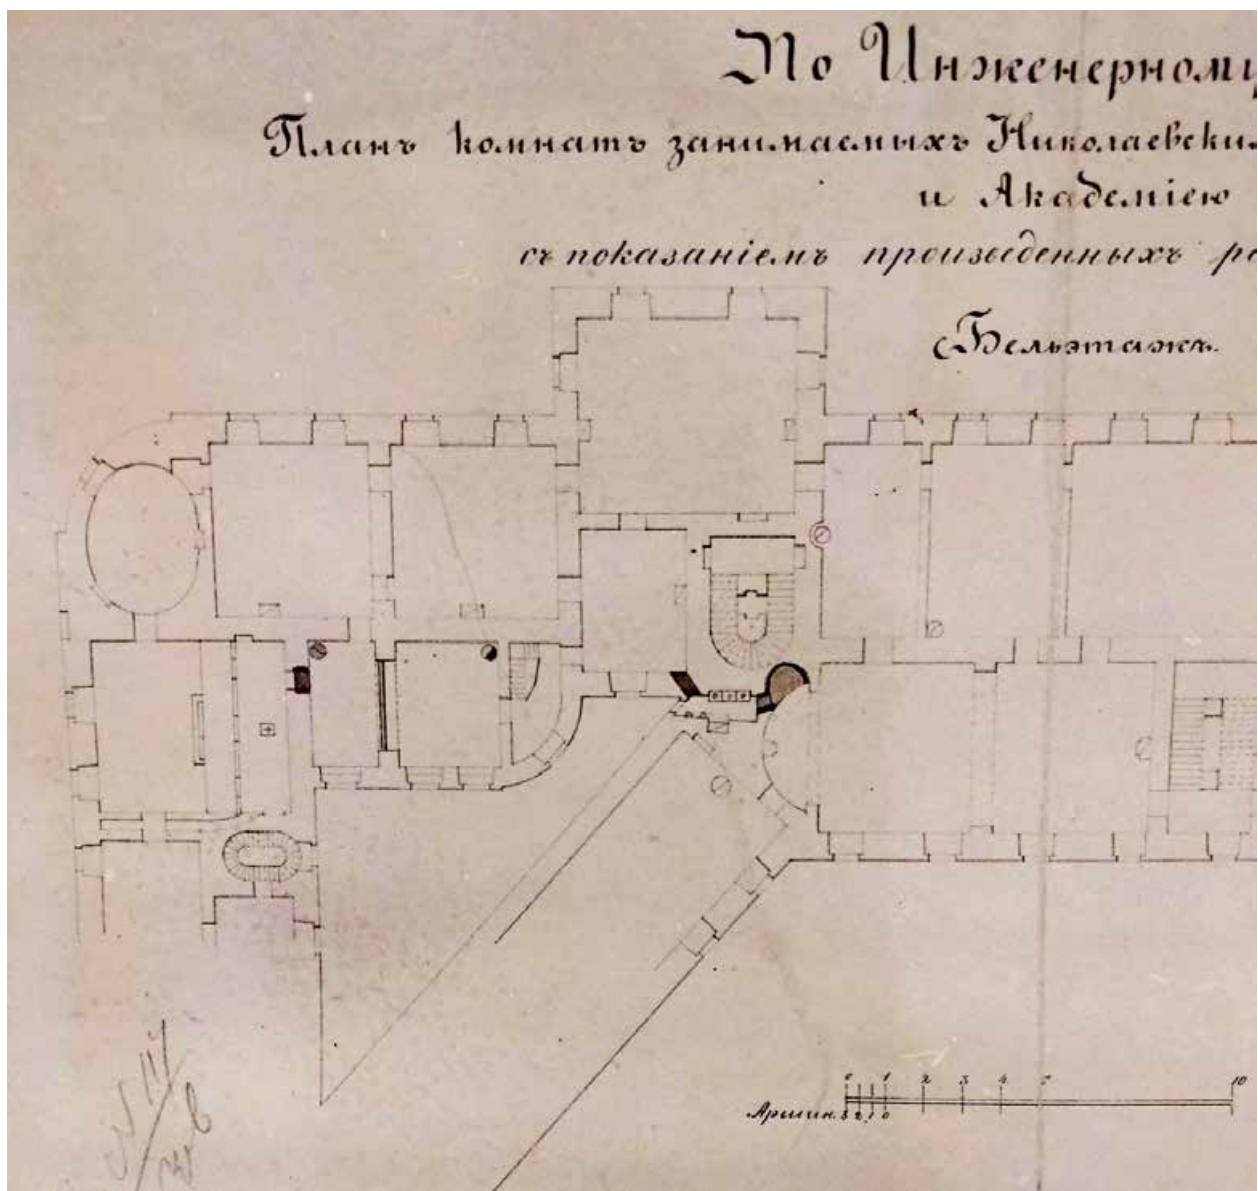 По Инженерному
Планъ комнатъ занимаемыхъ Николаевским
и Академіею
съ показаніемъ произведенныхъ ра
Бельэтажъ.
0 1 2 3 4 5 10
Аршин. 3 2 1 0